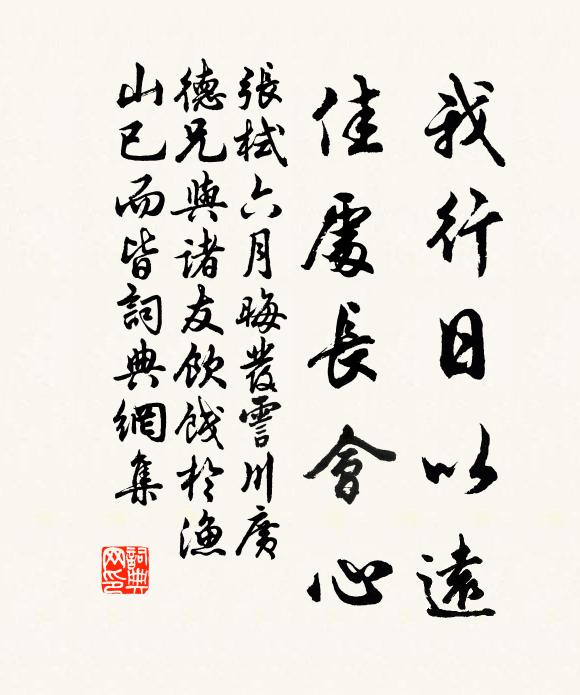 我行日以遠
佳處長會心
張栻六月晦發霅川廣
德兄與諸友飲餞於漁
山已而皆詞典網集
詞典網印